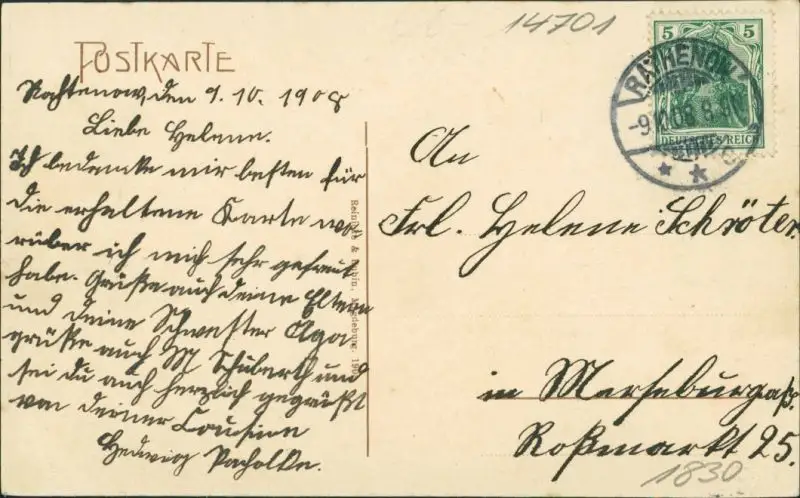 14701
POSTKARTE
Rathenow, den 9.10.1908
Liebe Helene.
Ich bedanke mir besten für
die erhaltene Karte wo-
rüber ich mich sehr gefreut
habe. Grüße auch deine Eltern
und deine Schwester Aga
grüße auch M Schuberth und
sei du auch herzlich gegrüßt
von deiner Cousine
Hedwig Pacholke.
Reinicke & Rubin, Magdeburg. 190
5 5
DEUTSCHES REICH
RATHENOW
An
Frl. Helene Schröter
in Merseburg a/S.
Roßmarkt 25.
1830